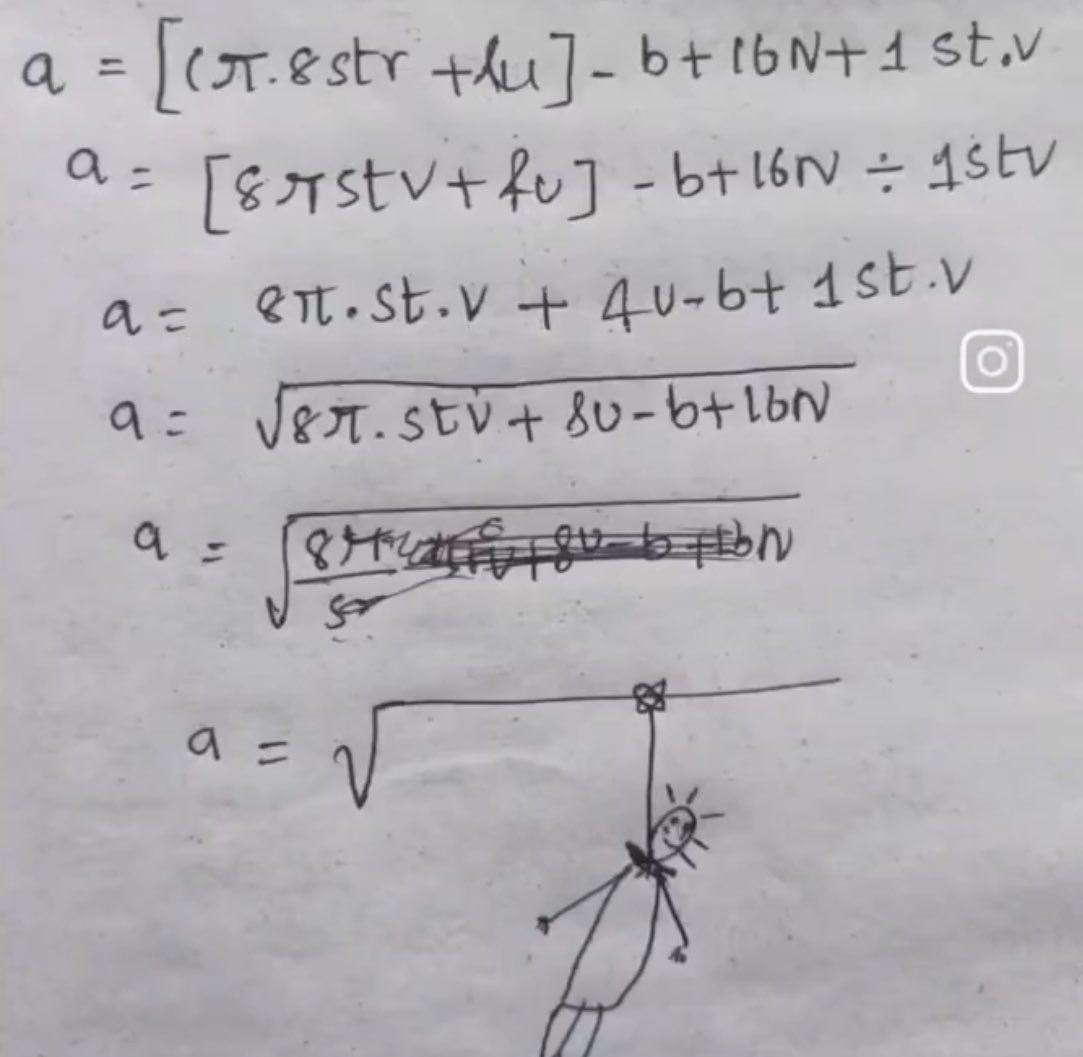 a = [(π.8str + 4u] - b + 16N + 1 st.v
a = [8πstv + 8u] - b + 16N ÷ 1stv
a = 8π.st.v + 4u - b + 1st.v
a = √8π.stv + 8u - b + 16N
a = √8π v + 8u - b + 16N
a = √